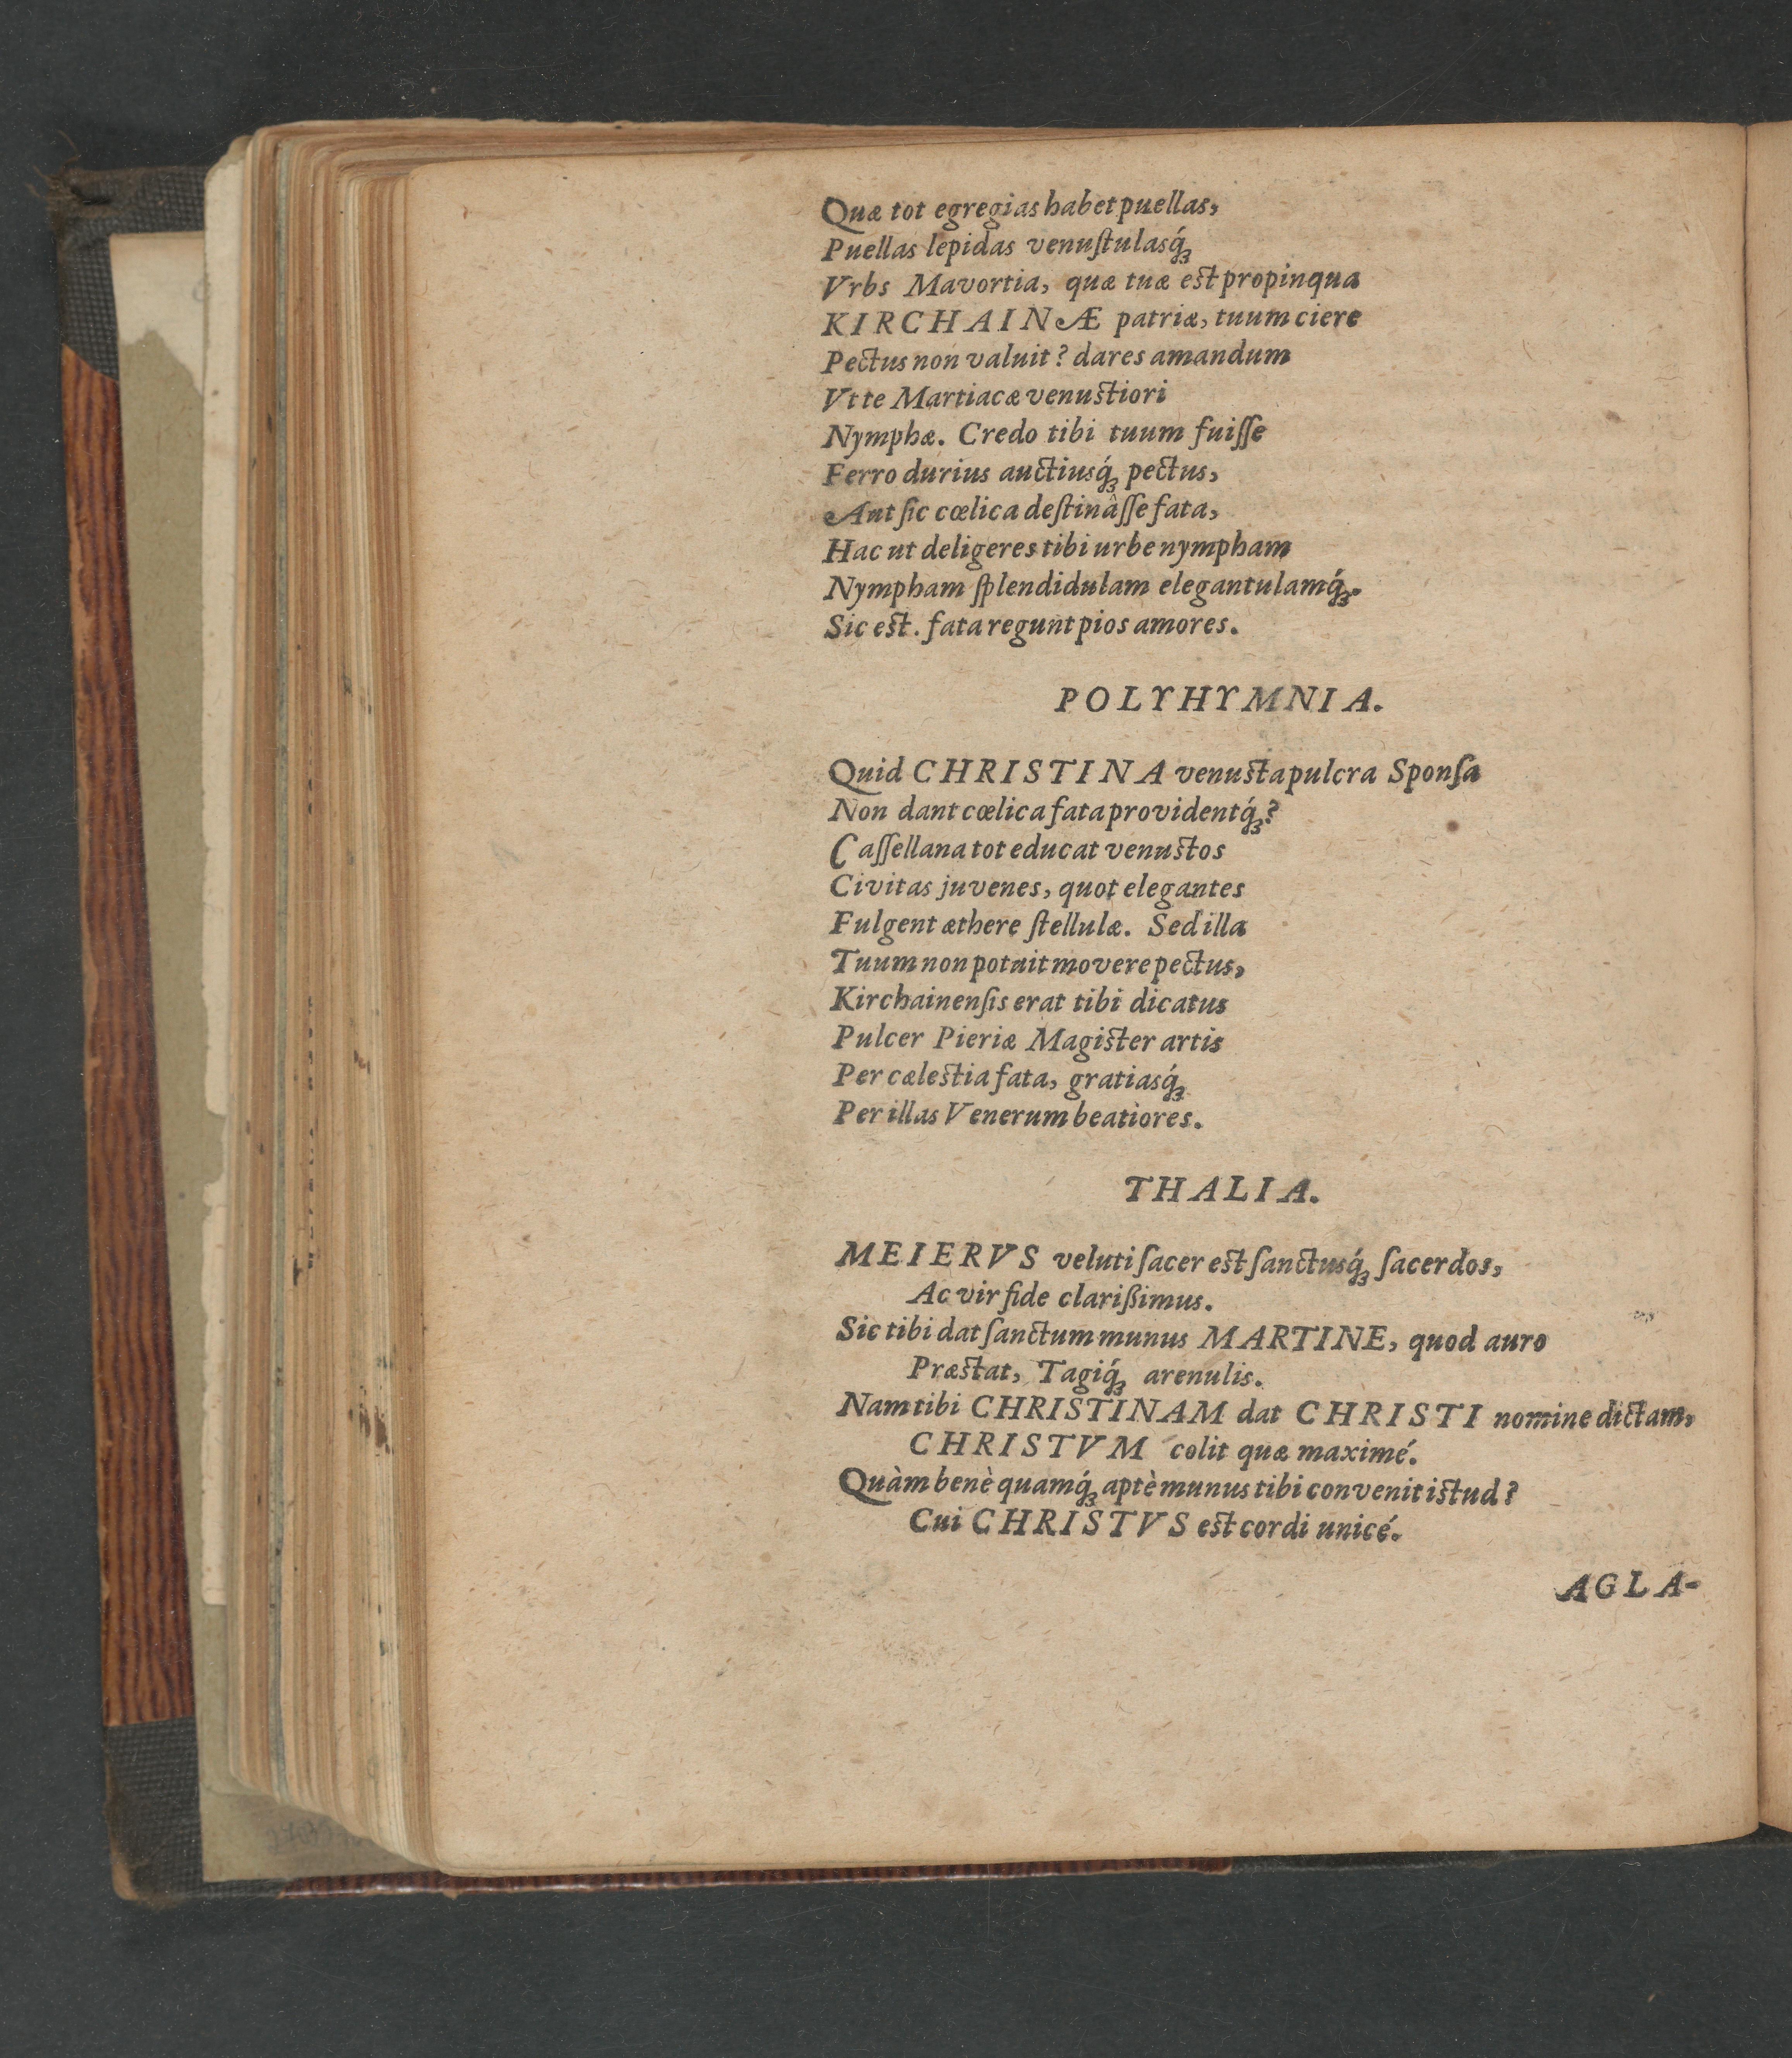 Quæ tot egregias habet puellas,
Puellas lepidas venuſtulasq́ꝫ
Vrbs Mavortia, quæ tuæ est propinqua
KIRCHAINÆ patriæ, tuum ciere
Pectus non valuit? dares amandum
Vt te Martiacæ venustiori
Nymphæ. Credo tibi tuum fuiſſe
Ferro durius auctiusq́ꝫ pectus,
Aut ſic cœlica deſtinâſſe fata,
Hac ut deligeres tibi urbe nympham
Nympham ſplendidulam elegantulamq́ꝫ.
Sic est. fata regunt pios amores.
POLYHYMNIA.
Quid CHRISTINA venusta pulcra Sponſa
Non dant cœlica fata providentq́ꝫ?
Caſſellana tot educat venustos
Civitas juvenes, quot elegantes
Fulgent æthere ſtellulæ. Sed illa
Tuum non potuit movere pectus,
Kirchainenſis erat tibi dicatus
Pulcer Pieriæ Magister artis
Per cælestia fata, gratiasq́ꝫ
Per illas Venerum beatiores.
THALIA.
MEIERVS veluti ſacer est ſanctusq́ꝫ ſacerdos,
Ac vir fide clarißimus.
Sic tibi dat ſanctum munus MARTINE, quod auro
Præstat, Tagiq́ꝫ arenulis.
Nam tibi CHRISTINAM dat CHRISTI nomine dictam,
CHRISTVM colit quæ maximé.
Quàm benè quamq́ꝫ aptè munus tibi convenit istud?
Cui CHRISTVS est cordi unicé.
AGLA-